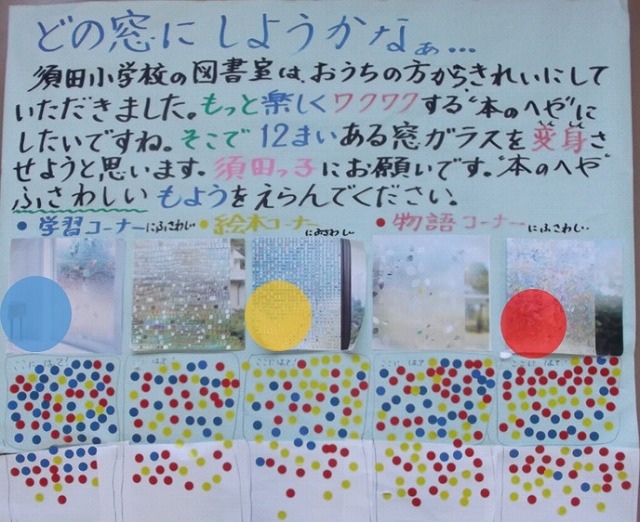 どの窓にしようかなぁ…
須田小学校の図書室は、おうちの方からきれいにして
いただきました。もっと楽しくワクワクする“本のへや”に
したいですね。そこで12まいある窓ガラスを変身さ
せようと思います。須田っ子にお願いです。“本のへや”
ふさわしいもようをえらんでください。
●学習コーナーにふさわしい ●絵本コーナーにふさわしい ●物語コーナーにふさわしい
ここにはって! ここにはって! ここにはって! ここにはって! ここにはって!